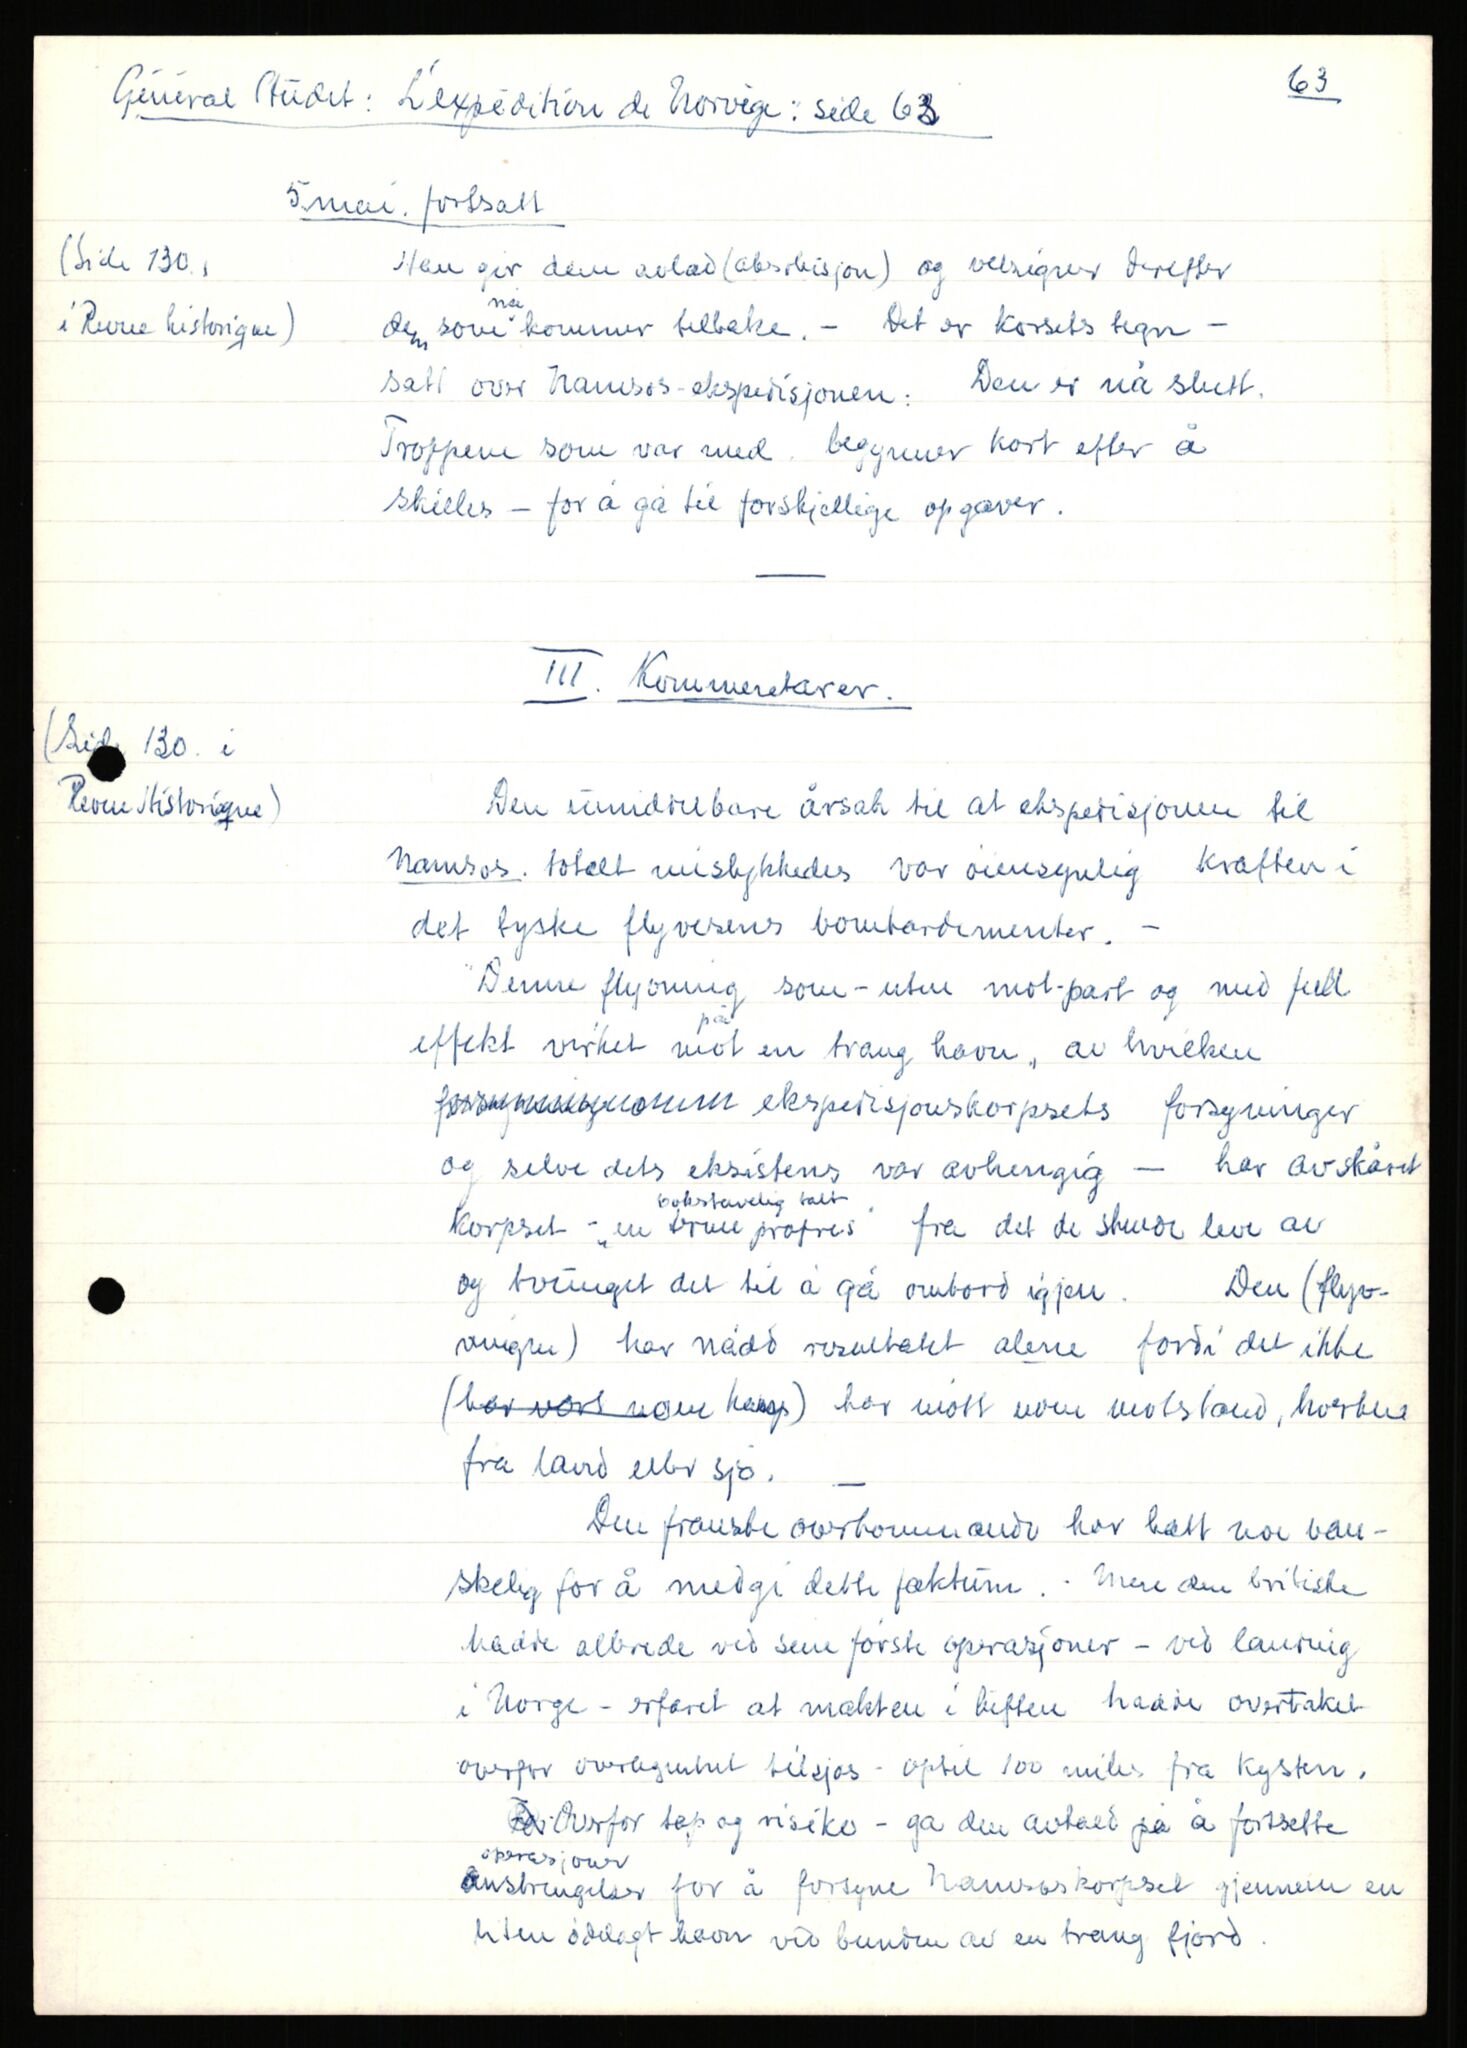 63
Général Audet: L'expédition de Norvège: side 63
5. mai. fortsatt
(Side 130.,
i Revue historique)
Han gir dem avlad (absolusjon) og velsigner derefter
dem som nå kommer tilbake. – Det er korsets tegn –
satt over Namsos-ekspedisjonen: Den er nå slutt.
Troppene som var med. begynner kort efter å
skilles – for å gå til forskjellige opgaver.
III. Kommentarer.
(Side 130. i
Revue Historique)
Den umiddelbare årsak til at ekspedisjonen til
Namsos. totalt mislykkedes var øiensynlig kraften i
det tyske flyvesens bombardementer. –
"Denne flyvning som – uten mot-part og med full
effekt virket mot på en trang havn, av hvilken
ekspedisjonskorpsets forsyninger
og selve dets eksistens var avhengig – har avskåret
bokstavelig talt
korpset – "en terme propres" fra det de skulde leve av
og tvunget det til å gå ombord igjen. Den (flyv-
vnigen) har nådd resultatet alene fordi det ikke
(har vært noen kamp) har møtt noen motstand, hverken
fra land eller sjø. –
Den franske overkommando har hatt noe van-
skelig for å medgi dette faktum. – Men den britiske
hadde allerede ved sine første operasjoner – ved landing
i Norge – erfaret at makten i luften hadde overtaket
overfor overlegenhet tilsjøs – optil 100 miles fra kysten.
Overfor tap og risiko – ga den avkald på å fortsette
operasjoner
anstrengelser for å forsyne Namsoskorpset gjennem en
liten ødelagt havn ved bunden av en trang fjord.